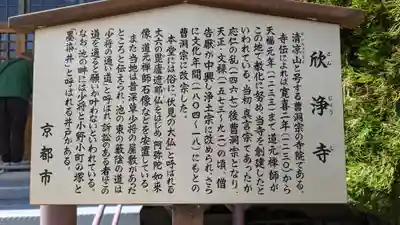 欣浄寺
ごん じょう じ
清凉山と号する曹洞宗の寺院である。
寺伝によれば、寛喜二年（一二三〇）から
天福元年（一二三三）まで道元禅師が
この地で教化に努め、当寺を創建したと
いわれている。当初真言宗であったが
応仁の乱（一四六七）後曹洞宗となり、
天正・文禄（一五七三〜九二）の頃、僧
告厭が中興し浄土宗に改められ、さら
に文化年間（一八〇四〜一八）にもとの
曹洞宗に改宗した。
本堂には俗に「伏見の大仏」と呼ばれる
大きな毘盧遮那仏をはじめ、阿弥陀如来
像、道元禅師石像などを安置している。
また当地は昔深草少将の屋敷があった
ところと伝えられ、池の東の藪陰の道は
「少将の通い道」と呼ばれ、訴訟のある者はこの
道を通ると願いが叶わないといわれている。
なお、池の畔には少将と小野小町の塚と
「墨染井」と呼ばれる井戸がある。
京都市